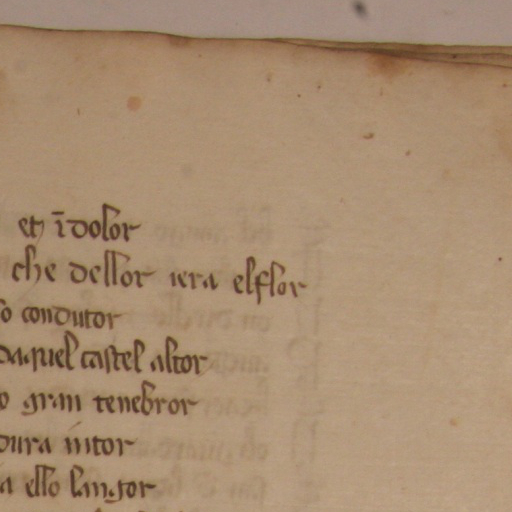 et ī dolor
che dellor iera elflor
o condutor
da quel castel altor
o gran tenebror
dura
a ello langor